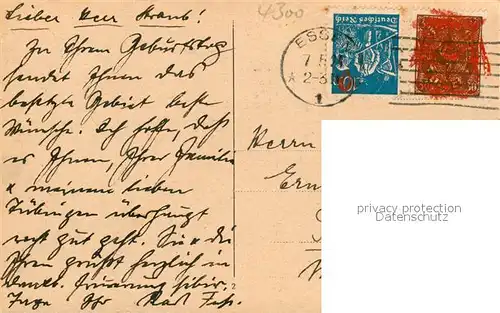 Lieber Herr Straub!
Zu Ihrem Geburtstag
sendet Ihnen das
besetzte Gebiet beste
Wünsche. Ich hoffe, daß
es Ihnen, Ihrer Familie
& meinem lieben
Tübingen überhaupt
recht gut geht. Sie & die
Ihren grüßt herzlich in
dankb. Erinnerung
Ihr Karl
4300
ESSEN
Deutsches Reich
10
Herrn
2
privacy protection
Datenschutz